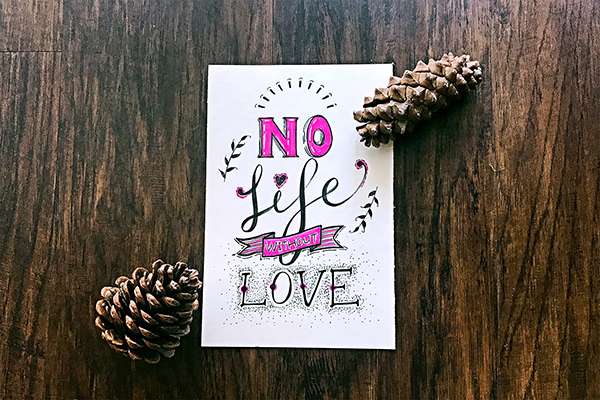 NO
Life
WITHOUT
LOVE